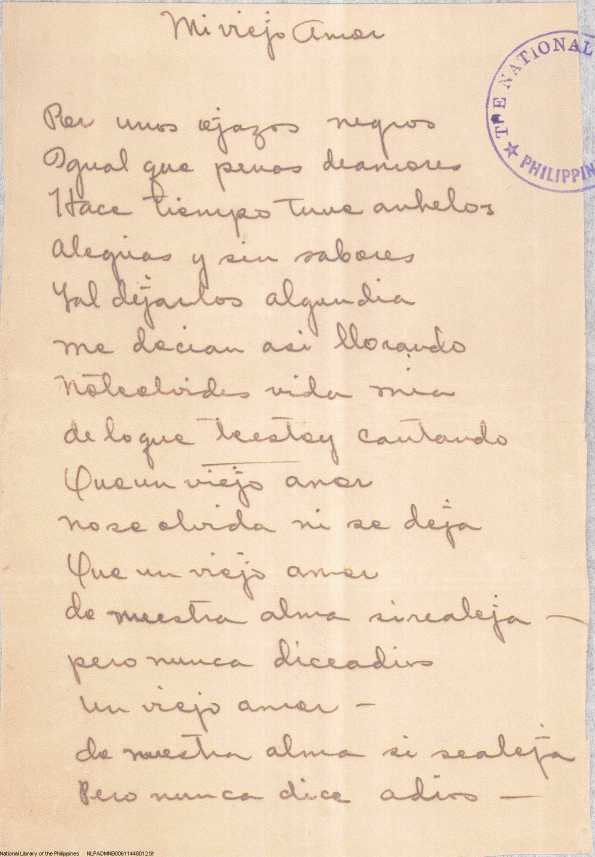 Mi viejo Amor
THE NATIONAL
PHILIPPIN
Por unos ojazos negros
Igual que penas deamores
Hace tiempo tuve anhelos
Alegrias y sin sabores
Yal dejarlos algundia
me decian asi llorando
Noteolvides vida mia
de loque teestoy cantando
Queun viejo amor
nose olvida ni se deja
Que un viejo amor
de nuestra alma sisealeja —
pero nunca diceadios
un viejo amor —
de nuestra alma si sealeja
Pero nunca dice adios —
National Library of the Philippines NLPADMNB00611448012.tif